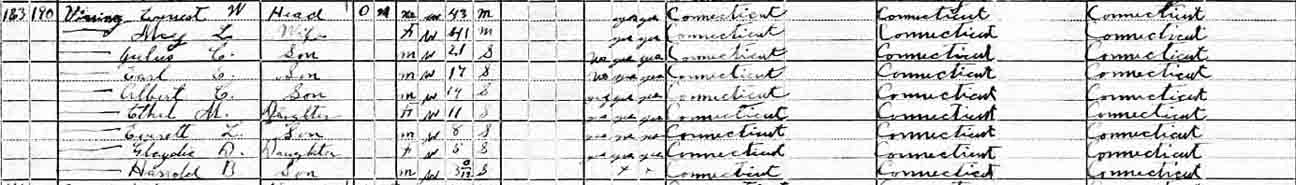 183 190 Vining Everest W Head O M m w 43 M yes yes Connecticut Connecticut Connecticut
—— L. Wife F w 41 M yes yes Connecticut Connecticut Connecticut
—— Julius C. Son m w 21 S No yes yes Connecticut Connecticut Connecticut
—— Earl C. Son m w 17 S No yes yes Connecticut Connecticut Connecticut
—— Albert C. Son m w 14 S yes yes yes Connecticut Connecticut Connecticut
—— Ethel M. Daughter F w 11 S yes yes yes Connecticut Connecticut Connecticut
—— Everett L. Son m w 8 S yes yes yes Connecticut Connecticut Connecticut
—— Glaydie D. Daughter F w 5 S Connecticut Connecticut Connecticut
—— Harrold B Son m w S x x Connecticut Connecticut Connecticut